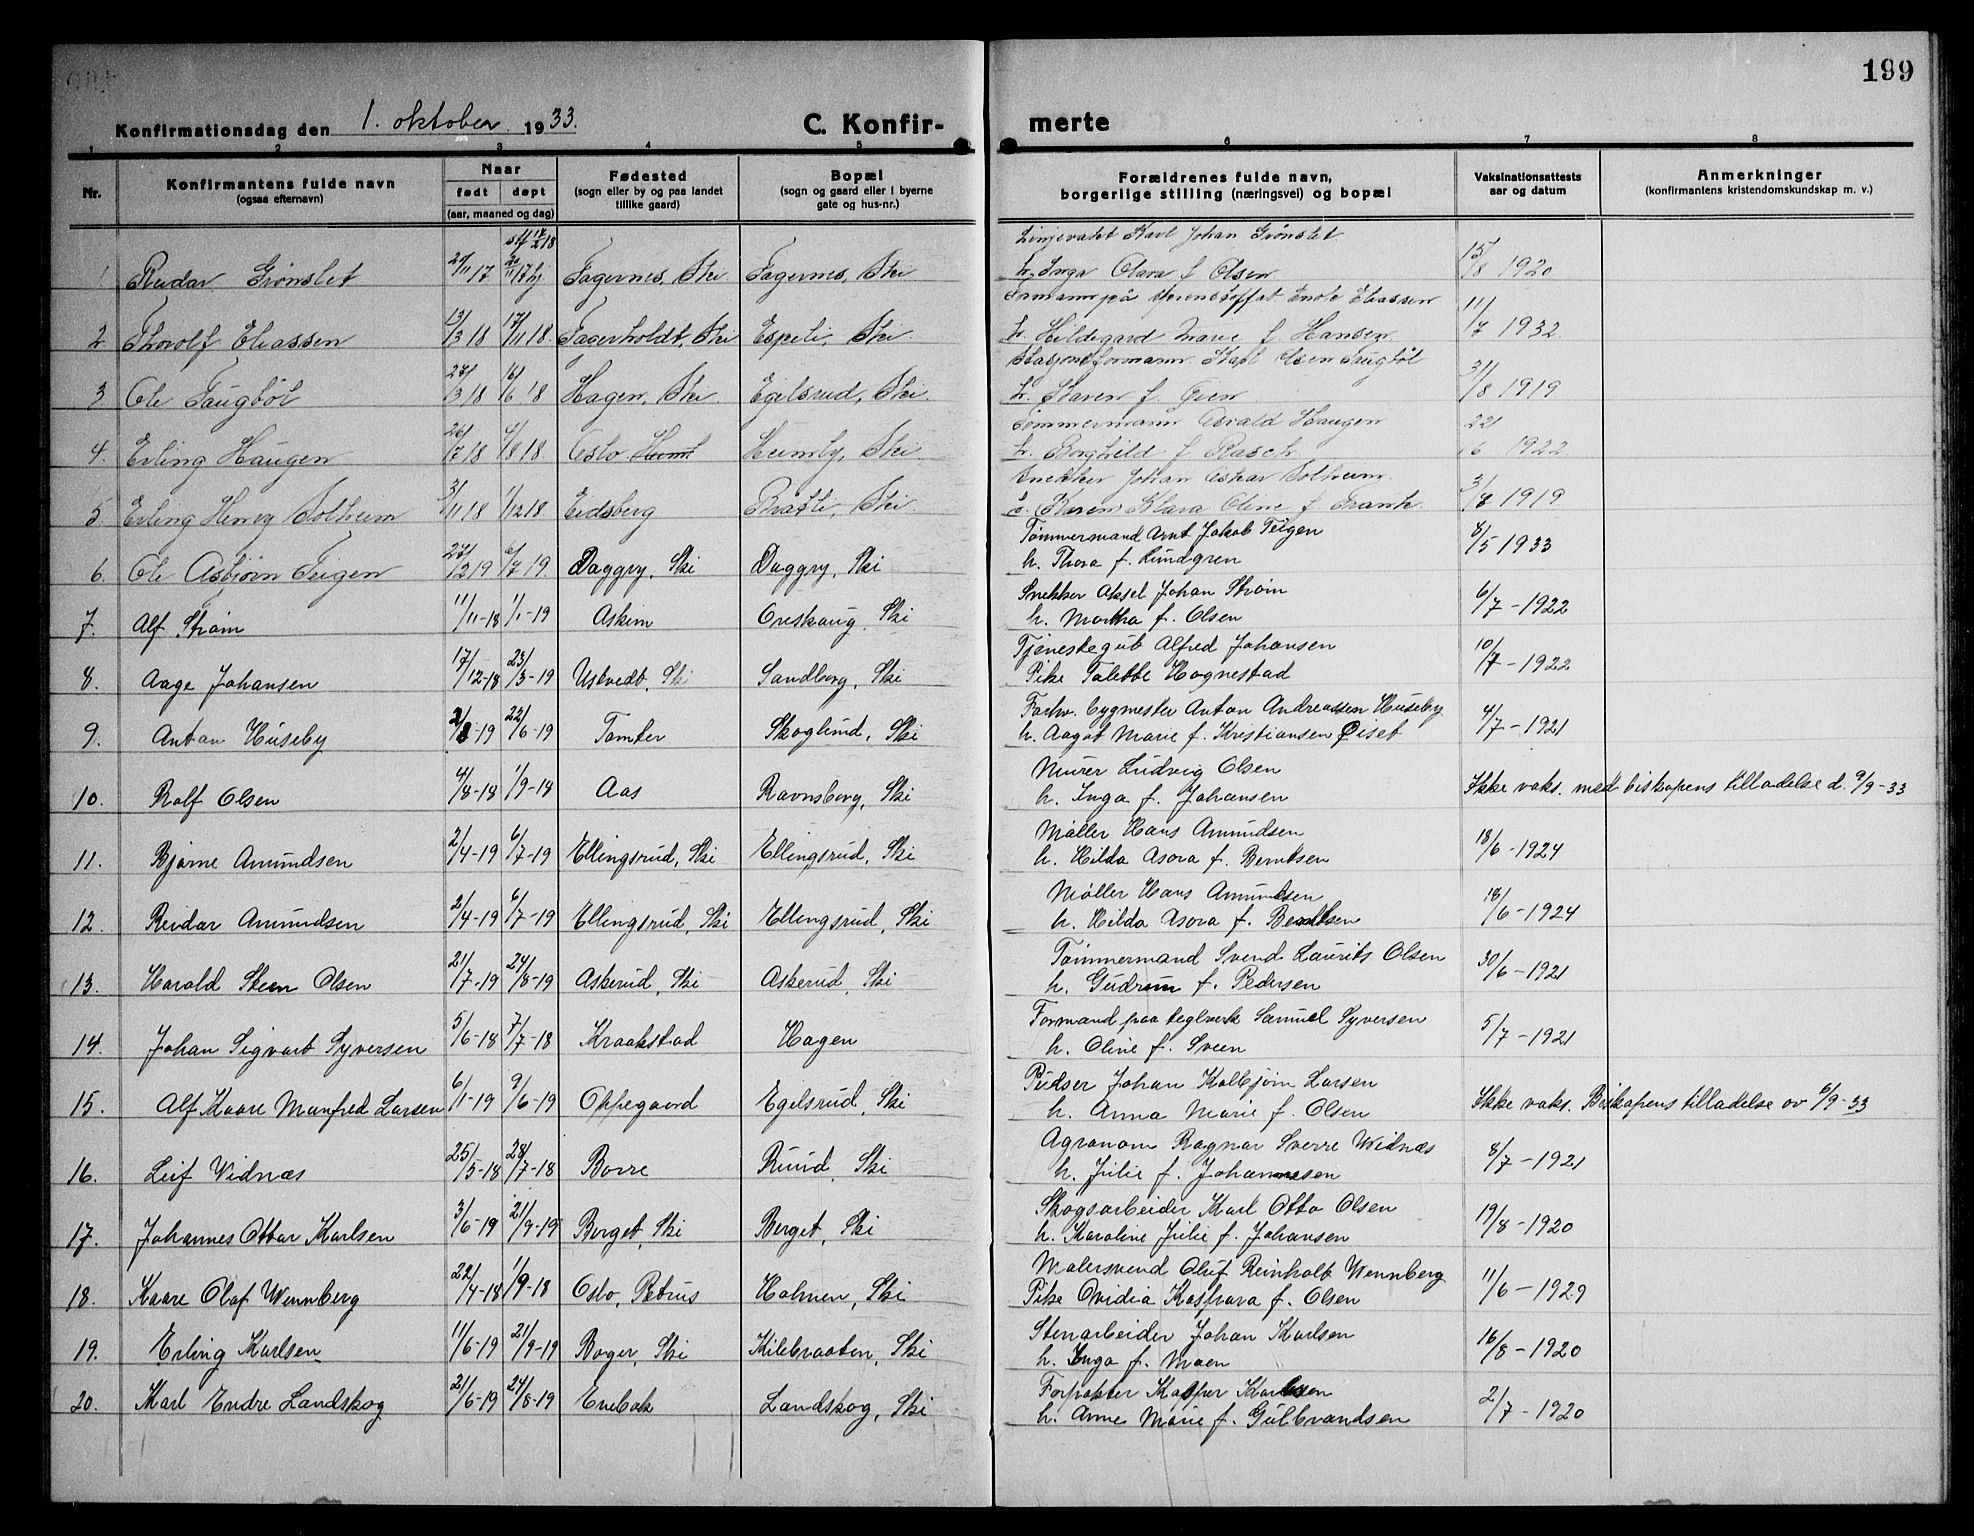 199
Konfirmationsdag den 1. oktober 1933. C. Konfir- merte
1 2 3 4 5 6 7 8
Nr. Konfirmantens fulde navn (ogsaa efternavn) Naar født døpt (aar, maaned og dag) Fødested (sogn eller by og paa landet tillike gaard) Bopæl (sogn og gaard eller i byerne gate og hus-nr.) Forældrenes fulde navn, borgerlige stilling (næringsvei) og bopæl Vaksinationsattests aar og datum Anmerkninger (konfirmantens kristendomskundskap m. v.)
Karl Johan Grønslet
1 Reidar Grønslet Fagernes, Ski Fagernes, Ski h. Inga Clara f. Olsen 15/8 1920
Eliassen
2 Thorolf Eliassen 13/3 18 17/11 18 Fagerholdt, Ski Espeli, Ski h. Hildegard Marie f. Hansen 11/7 1932
Stasjonsformann Karl Olsen Faugbøl
3 Ole Faugbøl 27/3 18 16/6 18 Hagen, Ski Egelsrud, Ski h. Karen f. Øien 31/8 1919
Tømmermann Osvald Haugen
4. Erling Haugen 26/7 18 4/8 18 Oslo Humly, Ski h. Borghild f. Rasch 22/6 1922
Snekker Johan Oskar Solheim
5 Erling Henry Solheim 3/11 18 1/12 18 Eidsberg Ski h. Karen Klara Oline f. Frank 1919
Tømmermand Arnt Jakob Teigen
6. Ole Asbjørn Teigen 6/7 19. Daggry, Ski Daggry, Ski h. Thora f. Lundgren 8/5 1933
Snekker Aksel Johan Strøm
7. Alf Strøm 11/11-18 1/1-19 Askim Oreskaug, Ski h. Martha f. Olsen 6/7-1922
Tjenestegut Alfred Johansen
8. Aage Johansen 17/12-18 23/3-19 Uskvedt, Ski Sandberg, Ski Pike Talette Hognestad 10/7-1922
Forhv. bygmester Anton Andreassen Huseby
9. Anton Huseby 22/6-19 Tomter Skoglund, Ski h. Aagot Marie f. Kristiansen Øiset 4/7-1921
Murer Ludvig Olsen
10. Rolf Olsen 4/8-18 1/9-18 Aas Ravnsborg, Ski h. Inga f. Johansen Ikke vaks. med biskopens tilladelse d. 9/9-33
Møller Hans Amundsen
11. Bjarne Amundsen 2/4-19 6/7-19 Ellingsrud, Ski Ellingsrud, Ski h. Hilda Asora f. Berntsen 18/6-1924
Møller Hans Amundsen
12. Reidar Amundsen 2/4-19 6/7-19 Ellingsrud, Ski Ellingsrud, Ski h. Hilda Asora f. Berntsen 18/6-1924
Tømmermand Svend Laurits Olsen
13. Harald Steen Olsen 21/7-19 24/8-19 Askerud, Ski Askerud, Ski h. Gudrun f. Pedersen 30/6-1921
Formand paa teglverk Samuel Syversen
14. Johan Sigvart Syversen 5/6-18 7/7-18 Kraakstad Hagen h. Oline f. Sveen 5/7-1921
Pudser Johan Kolbjørn Larsen
15. Alf Kaare Manfred Larsen 6/1-19 9/6-19 Oppegaard Egelsrud, Ski h. Anna Marie f. Olsen Ikke vaks. Biskopens tilladelse av 6/9-33
Agronom Ragnar Sverre Widnæs
16. Leif Widnæs 25/5-18 28/7-18 Borre Ruud, Ski h. Julie f. Johannesen 8/7-1921
Skogsarbeider Karl Otto Olsen
17. Johannes Ottar Karlsen 3/6-19 21/9-19 Berget, Ski Berget, Ski h. Karoline Julie f. Johansen 19/8-1920
Malersvend Oluf Reinholt Wennberg
18. Kaare Olaf Wennberg 22/4-18 1/9-18 Oslo, Petrus Holmen, Ski Pike Ovidia Kaspara f. Olsen 11/6-1929
Stenarbeider Johan Karlsen
19. Erling Karlsen 11/6-19 21/9-19 Boger, Ski Kilebraaten, Ski h. Inga f. Moen 16/8-1920
Forpakter Kasper Karlsen
20. Karl Endre Landskog 21/6-19 24/8-19 Enebak Landskog, Ski h. Anne Marie f. Gulbrandsen 2/7-1920